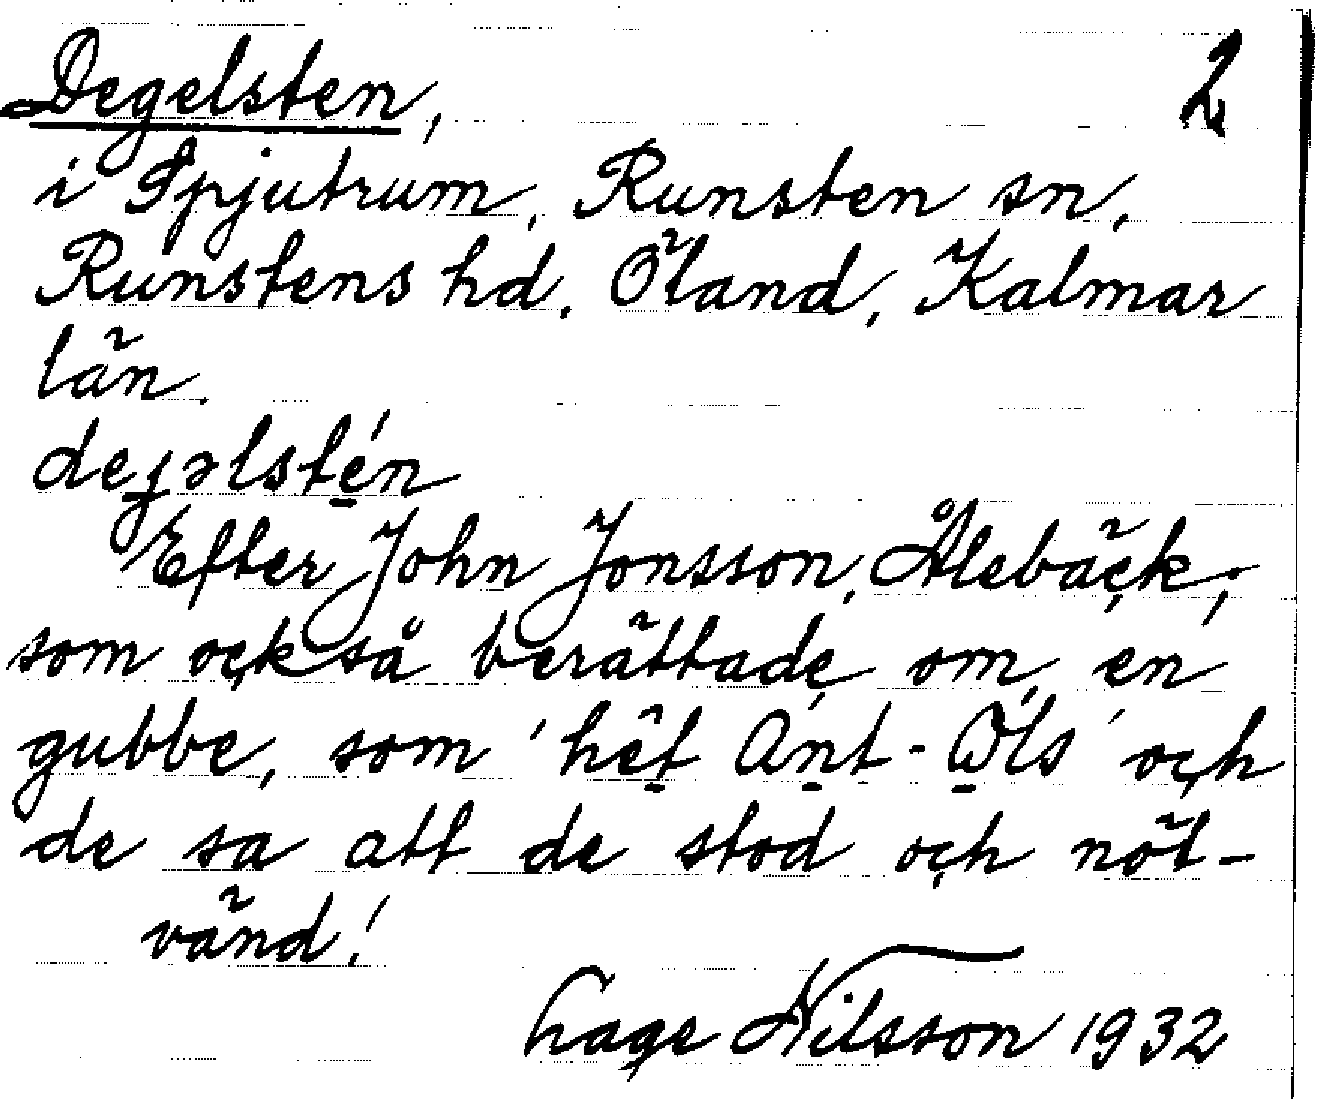 Degelsten, 2
i Spjutrum, Runsten sn,
Runstens hd. Öland, Kalmar
län.
deɟəlstén
Efter John Jonsson, Ålebäck,
som också berättade om en
gubbe, som 'hêt Ant-Ols' och
de sa att de stod och nöt-
vänd!
Lage Nilsson 1932